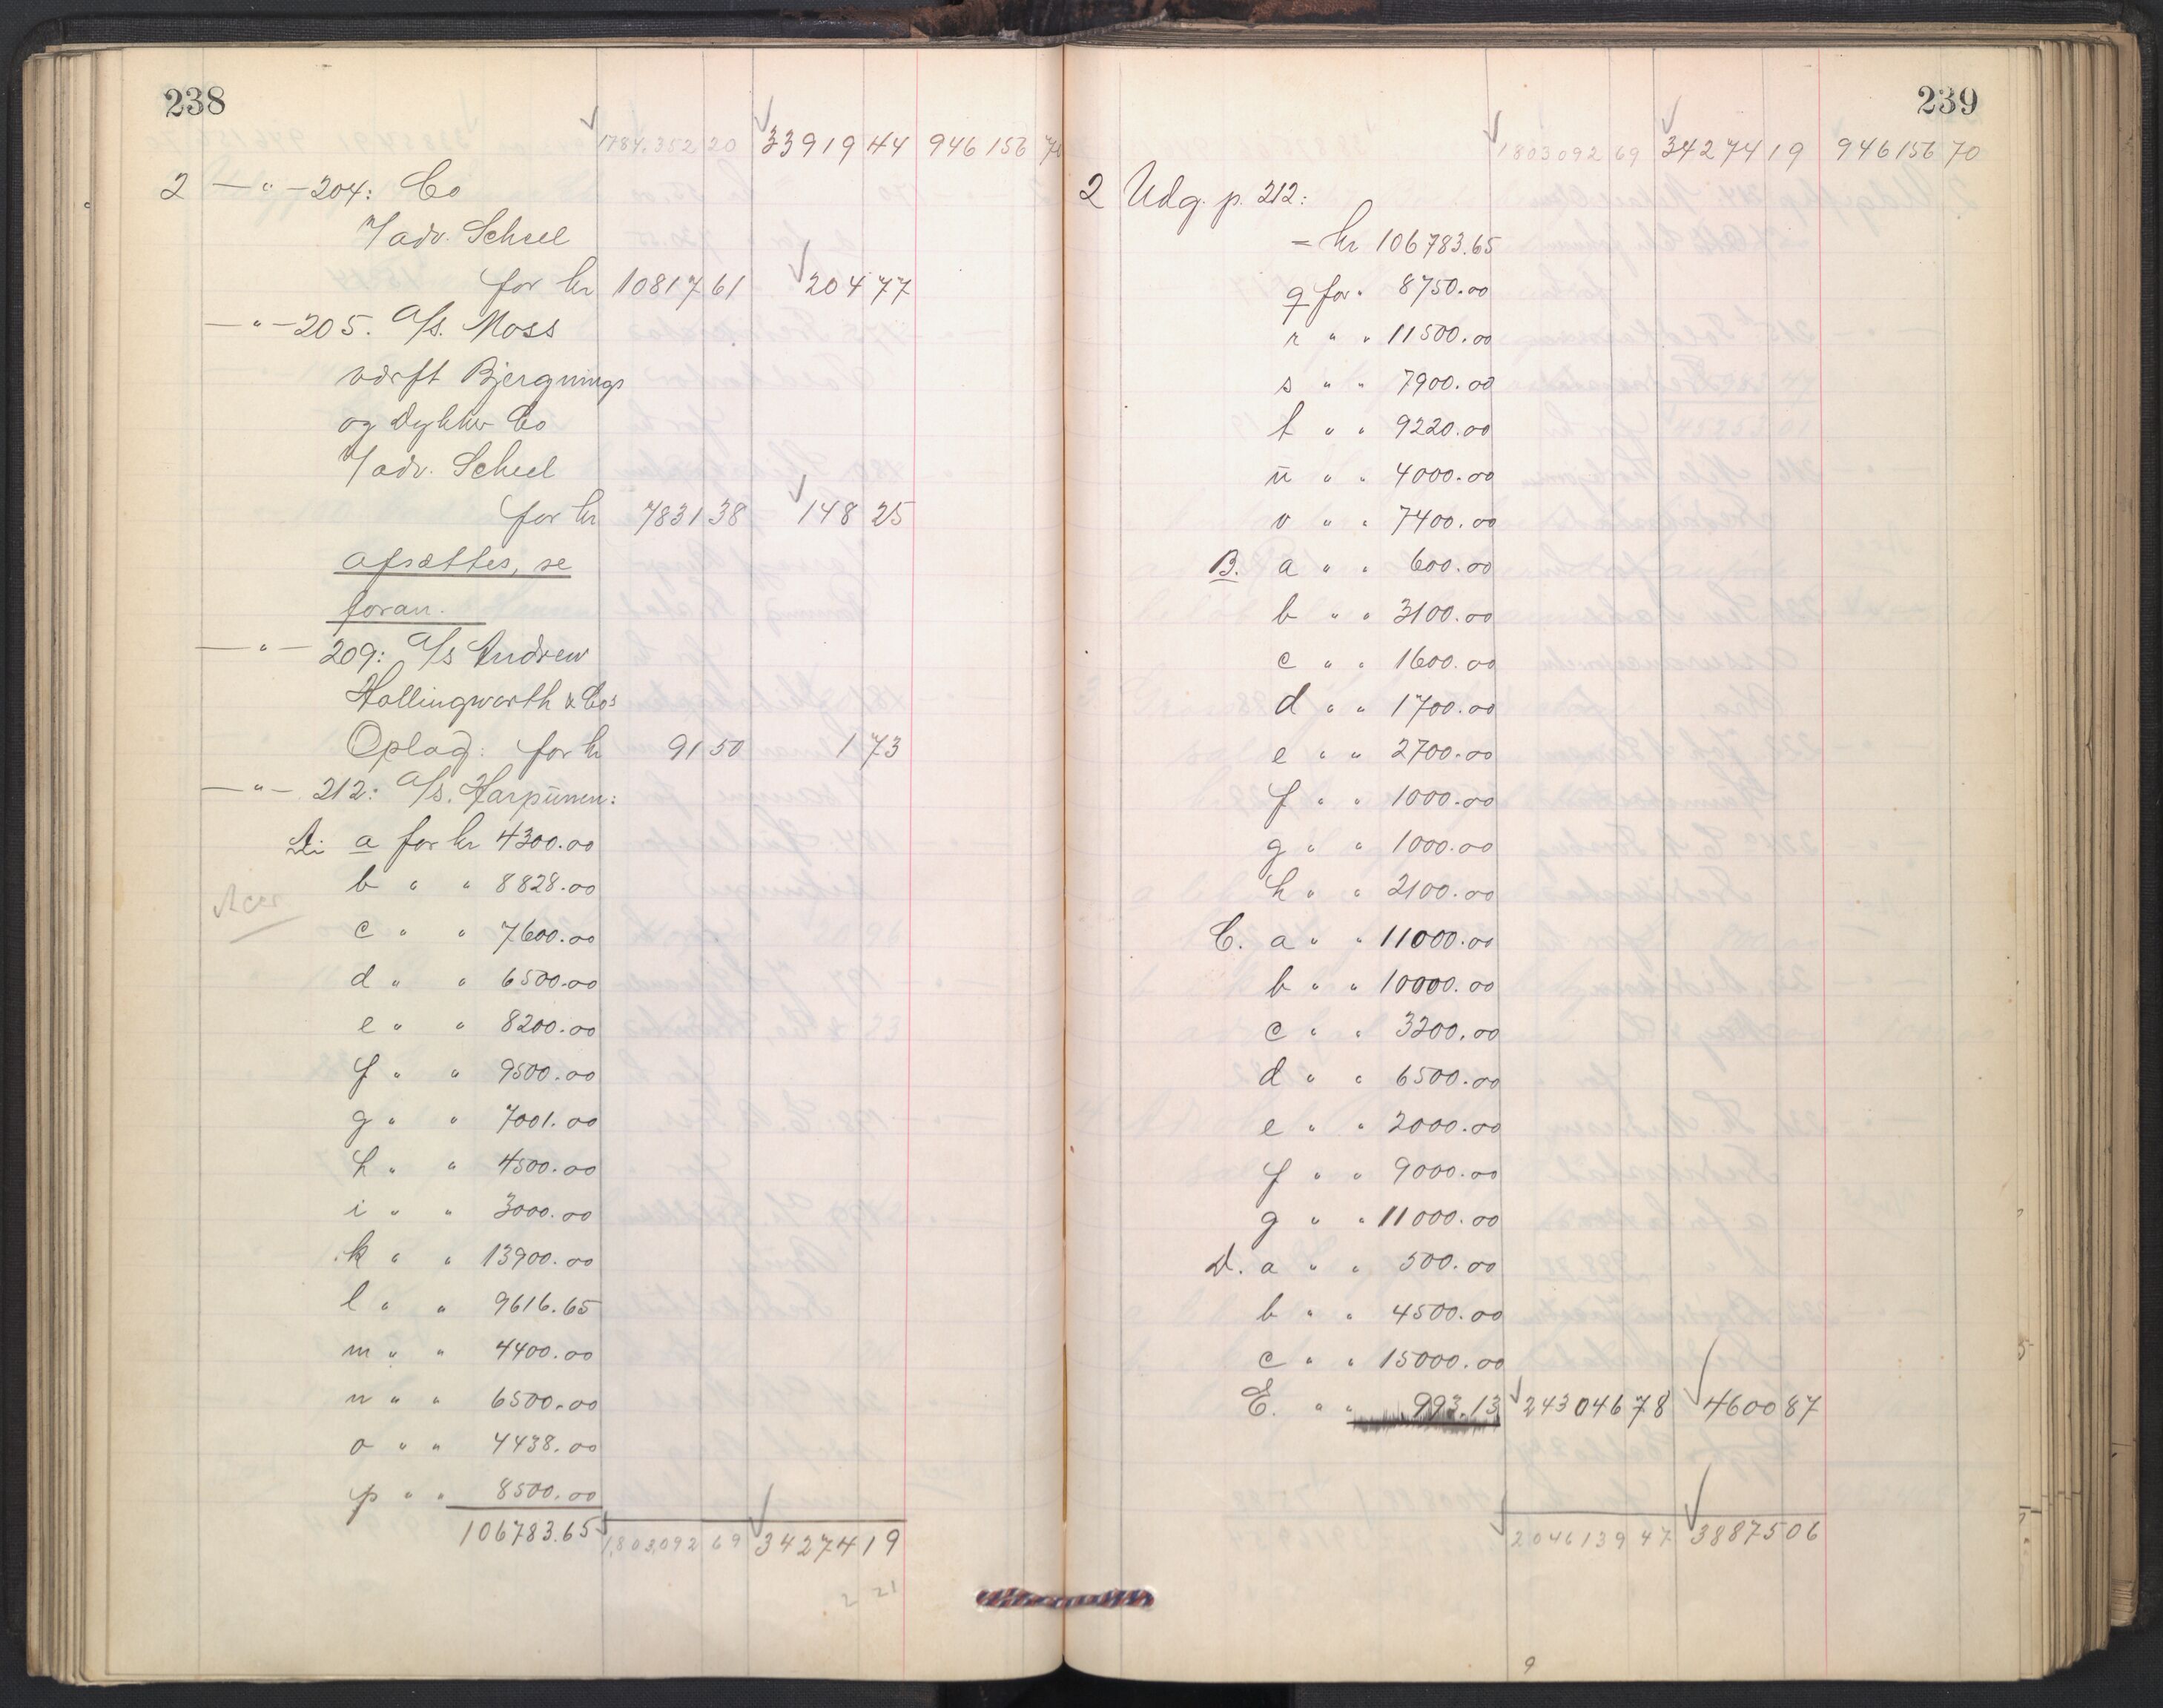 238
1784.352 20 33919 44 946 156 70
2 — " — 204: Co
V/ adv. Scheel
for kr 10817 61 204 77
— " — 205. A/S. Moss
værft Bjergnings
og Dykker Co
V/ adv. Scheel
for kr 7831 38 148 25
Afsættes, se
foran.
— " — 209: A/S Andrew
Hollingworth & Cos
Oplag: for kr 91 50 1 73
— " — 212: A/S. Harpunen:
A: a for kr 4300.00
b " " 8828.00
c " " 7600.00
d " " 6500.00
e " " 8200.00
f " " 9500.00
g " " 7001.00
h " " 4500.00
i " " 3000.00
k " " 13900.00
l " " 9616.65
m " " 4400.00
n " " 6500.00
o " " 4438.00
p " " 8500.00
106783.65 1,803,092 69 34274 19
2 21
239
1803092 69 34274 19 946156 70
2 Udg. p. 212:
= kr 106783.65
q for " 8750.00
r " " 11500.00
s " " 7900.00
t " " 9220.00
u " " 4000.00
v " " 7400.00
B. a " " 600.00
b " " 3100.00
c " " 1600.00
d " " 1700.00
e " " 2700.00
f " " 1000.00
g " " 1000.00
h " " 2100.00
C. a " " 11000.00
b " " 10000.00
c " " 3200.00
d " " 6500.00
e " " 2000.00
f " " 9000.00
g " " 11000.00
D. a " " 500.00
b " " 4500.00
c " " 15000.00
E. " " 993.13 243046 78 4600 87
2046139 47 38875 06
9